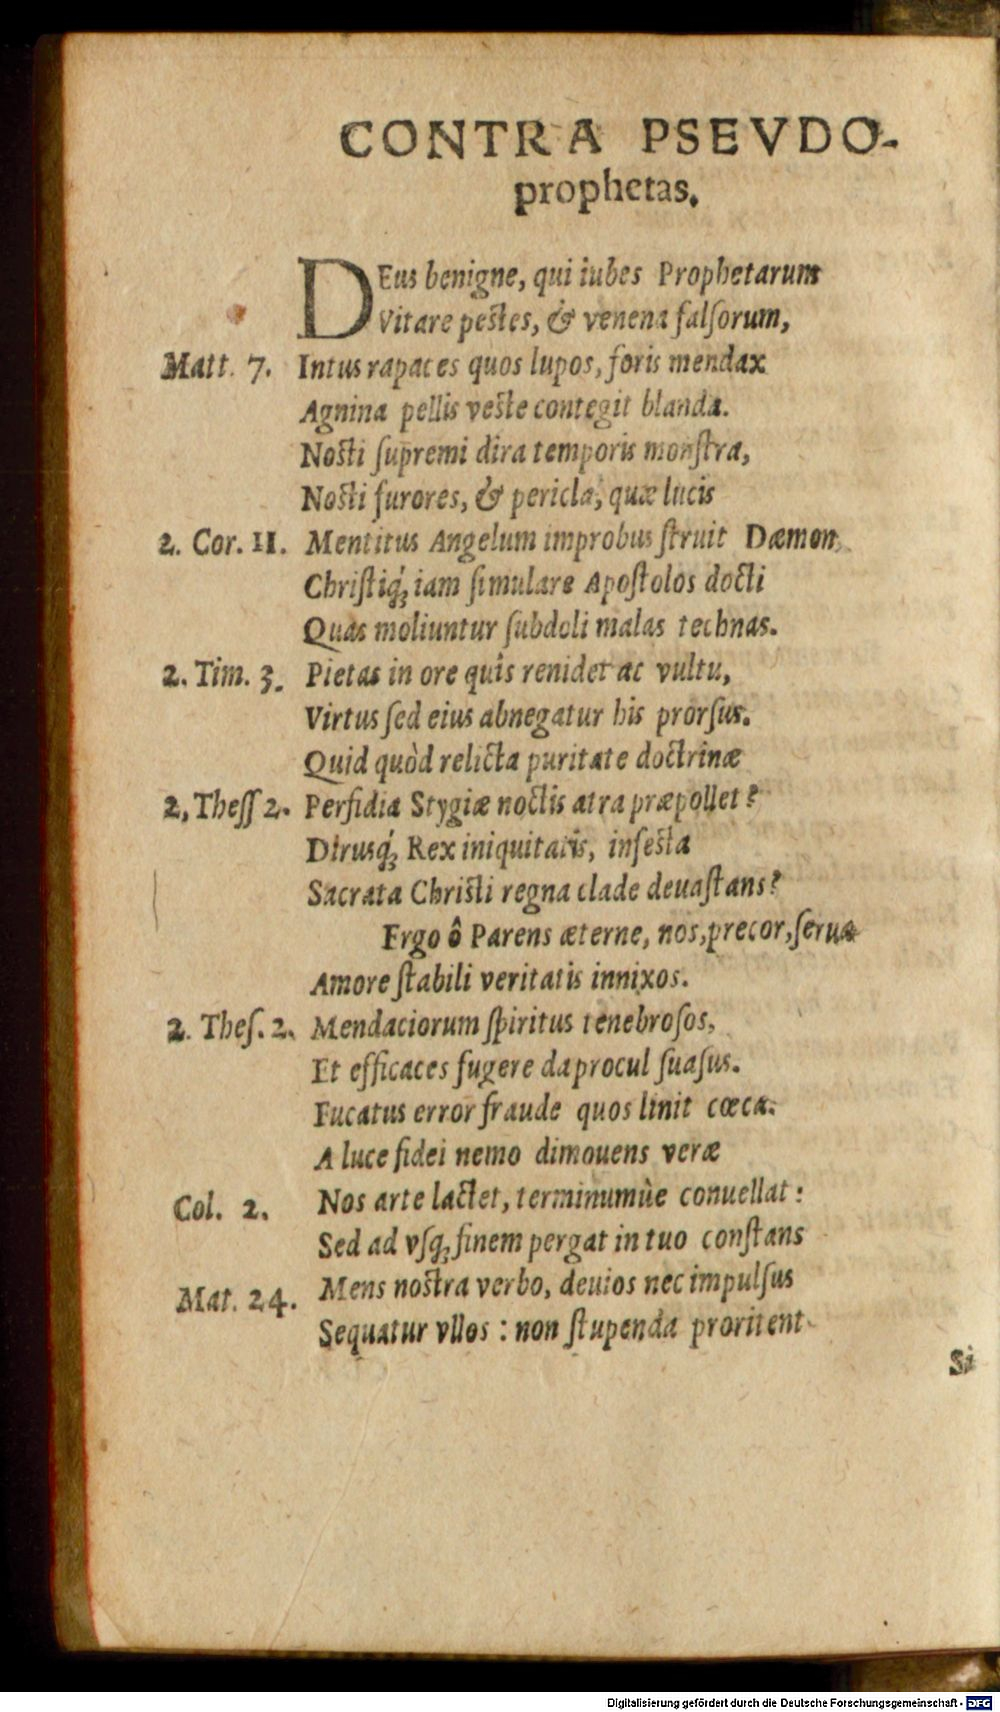 CONTRA PSEVDO-
prophetas.
DEus benigne, qui iubes Prophetarum
Vitare pestes, & venena falſorum,
Matt. 7. Intus rapaces quos lupos, foris mendax
Agnina pellis veste contegit blanda.
Nosti ſupremi dira temporis monſtra,
Nosti furores, & pericla, quæ lucis
2. Cor. 11. Mentitus Angelum improbus ſtruit Dæmon,
Chriſtiq́; iam ſimulare Apoſtolos docti
Quas moliuntur ſubdoli malas technas.
2. Tim. 3. Pietas in ore quîs renidet ac vultu,
Virtus ſed eius abnegatur his prorſus.
Quid quòd relicta puritate doctrinæ
2, Theſſ 2. Perfidia Stygiæ noctis atra præpollet?
Dirusq́; Rex iniquitatis, infesta
Sacrata Christi regna clade deuaſtans?
Ergo ô Parens æterne, nos, precor, ſerua
Amore ſtabili veritatis innixos.
2. Theſ. 2. Mendaciorum ſpiritus tenebroſos,
Et efficaces fugere da procul ſuaſus.
Fucatus error fraude quos linit cœca.
A luce fidei nemo dimouens veræ
Col. 2. Nos arte lactet, terminumùe conuellat:
Sed ad vſq; finem pergat in tuo conſtans
Mat. 24. Mens noſtra verbo, deuios nec impulſus
Sequatur vllos: non ſtupenda proritent
Si
Digitalisierung gefördert durch die Deutsche Forschungsgemeinschaft - DFG